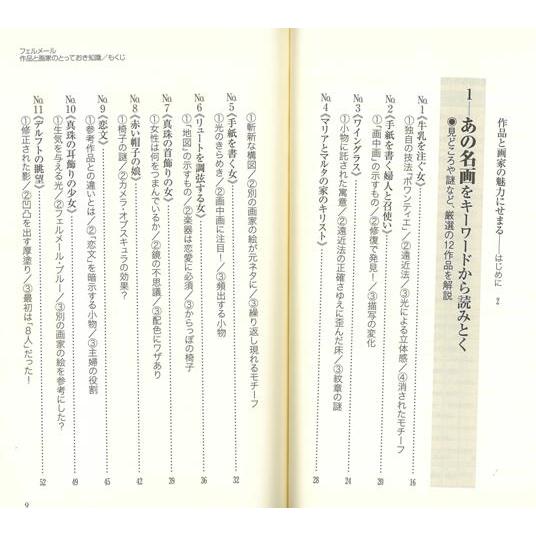 作品と画家の魅力にせまる——はじめに 2
1——あの名画をキーワードから読みとく
●見どころや謎など、厳選の12作品を解説
No.1《牛乳を注ぐ女》 16
①独自の技法「ポワンティエ」/②遠近法/③光による立体感/④消されたモチーフ
No.2《手紙を書く婦人と召使い》 20
①「画中画」の示すもの/②修復で発見!/③描写の変化
No.3《ワイングラス》 24
①小物に託された寓意/②遠近法の正確さゆえに歪んだ床/③紋章の謎
No.4《マリアとマルタの家のキリスト》 28
①斬新な構図/②別の画家の絵が元ネタに/③繰り返し現れるモチーフ
No.5《手紙を書く女》 32
①光のきらめき/②画中画に注目!/③頻出する小物
No.6《リュートを調弦する女》 36
①「地図」の示すもの/②楽器は恋愛に必須/③からっぽの椅子
No.7《真珠の首飾りの女》 39
①女性は何をつまんでいるか/②鏡の不思議/③配色にワザあり
No.8《赤い帽子の娘》 42
①椅子の謎/②カメラ・オブスキュラの効果?
No.9《恋文》 45
①参考作品との違いとは/②「恋文」を暗示する小物/③主婦の役割
No.10《真珠の耳飾りの少女》 49
①生気を与える光/②フェルメール・ブルー/③別の画家の絵を参考にした?
No.11《デルフトの眺望》 52
①修正された影/②凹凸を出す厚塗り/③最初は「8人」だった!
フェルメール
作品と画家のとっておき知識/もくじ
9